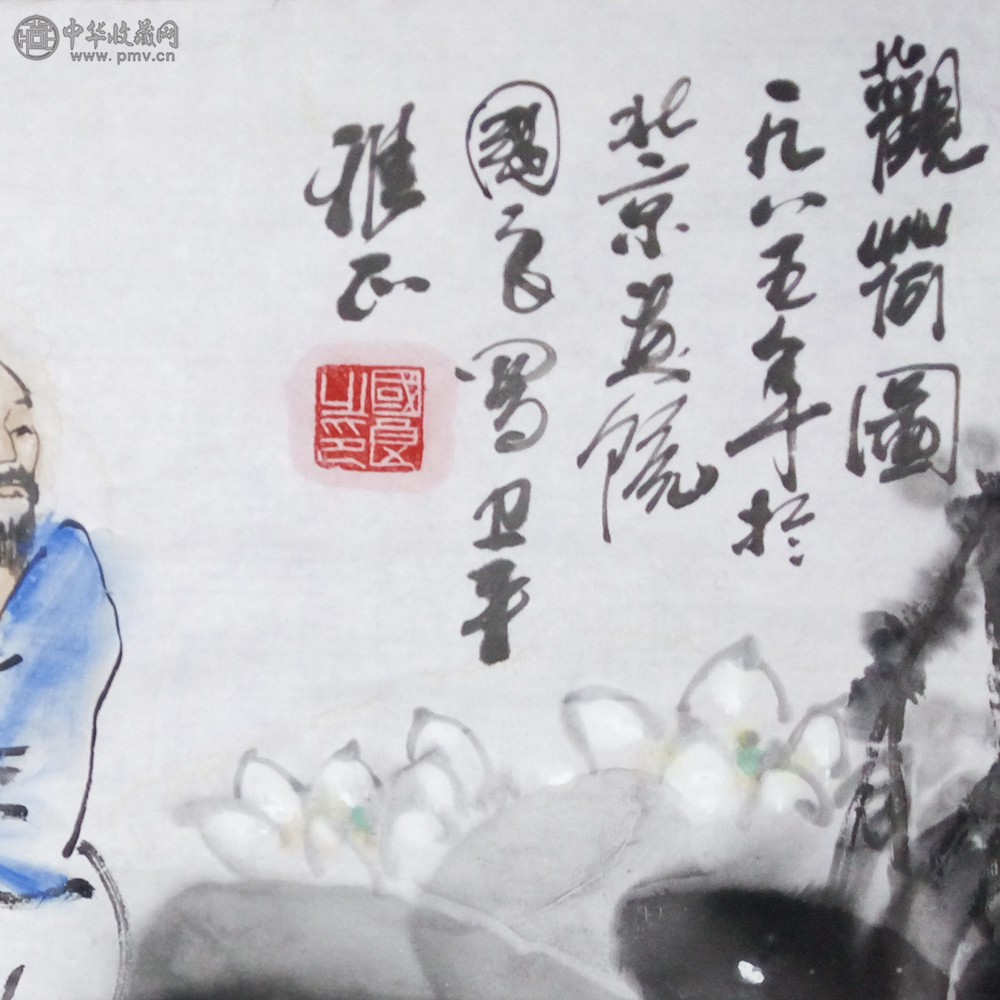 中华收藏网
www.pmv.cn
觀荷圖
一九八五年於
北京画院
國良寫卫平
雅正
國良之印